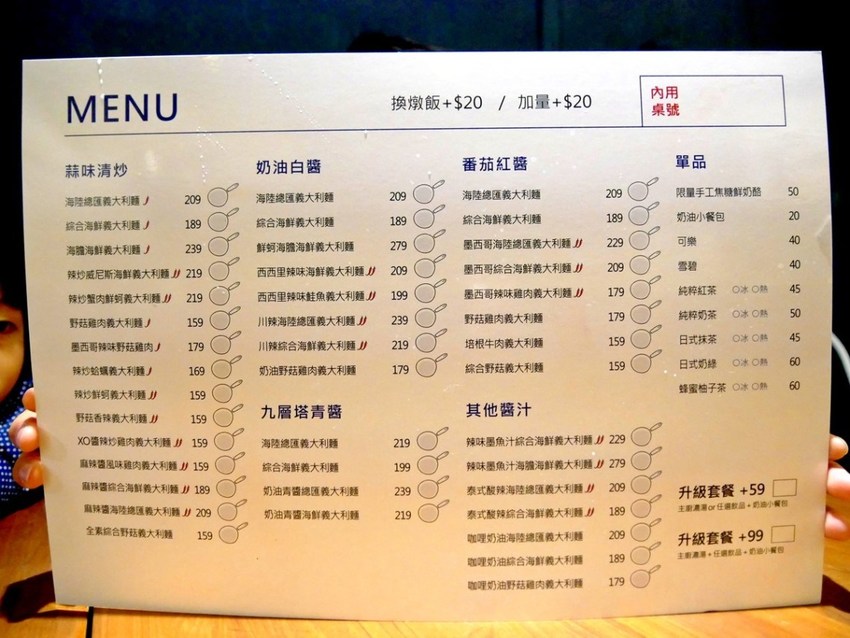 MENU
換燉飯+$20 / 加量+$20
內用
桌號
蒜味清炒
海陸總匯義大利麵 209
綜合海鮮義大利麵 189
海膽海鮮義大利麵 239
辣炒威尼斯海鮮義大利麵 219
辣炒蟹肉鮮蚵義大利麵 219
野菇雞肉義大利麵 159
墨西哥辣味野菇雞肉 179
辣炒蛤蠣義大利麵 169
辣炒鮮蚵義大利麵 159
野菇香辣義大利麵 159
XO醬辣炒雞肉義大利麵 159
麻辣醬風味雞肉義大利麵 159
麻辣醬綜合海鮮義大利麵 189
麻辣醬海陸總匯義大利麵 209
全素綜合野菇義大利麵 159
奶油白醬
海陸總匯義大利麵 209
綜合海鮮義大利麵 189
鮮蚵海膽海鮮義大利麵 279
西西里辣味海鮮義大利麵 209
西西里辣味鮭魚義大利麵 199
川辣海陸總匯義大利麵 239
川辣綜合海鮮義大利麵 219
奶油野菇雞肉義大利麵 179
九層塔青醬
海陸總匯義大利麵 219
綜合海鮮義大利麵 199
奶油青醬總匯義大利麵 239
奶油青醬海鮮義大利麵 219
番茄紅醬
海陸總匯義大利麵 209
綜合海鮮義大利麵 189
墨西哥海陸總匯義大利麵 229
墨西哥綜合海鮮義大利麵 209
墨西哥辣味雞肉義大利麵 179
野菇雞肉義大利麵 179
培根牛肉義大利麵 159
綜合野菇義大利麵 159
其他醬汁
辣味墨魚汁綜合海鮮義大利麵 229
辣味墨魚汁海膽海鮮義大利麵 279
泰式酸辣海陸總匯義大利麵 209
泰式酸辣綜合海鮮義大利麵 189
咖哩奶油海陸總匯義大利麵 209
咖哩奶油綜合海鮮義大利麵 189
咖哩奶油野菇雞肉義大利麵 179
單品
限量手工焦糖鮮奶酪 50
奶油小餐包 20
可樂 40
雪碧 40
純粹紅茶 ○冰 ○熱 45
純粹奶茶 ○冰 ○熱 50
日式抹茶 ○冰 ○熱 45
日式奶綠 ○冰 ○熱 60
蜂蜜柚子茶 ○冰 ○熱 60
升級套餐 +59
主廚濃湯or任選飲品+奶油小餐包
升級套餐 +99
主廚濃湯+任選飲品+奶油小餐包